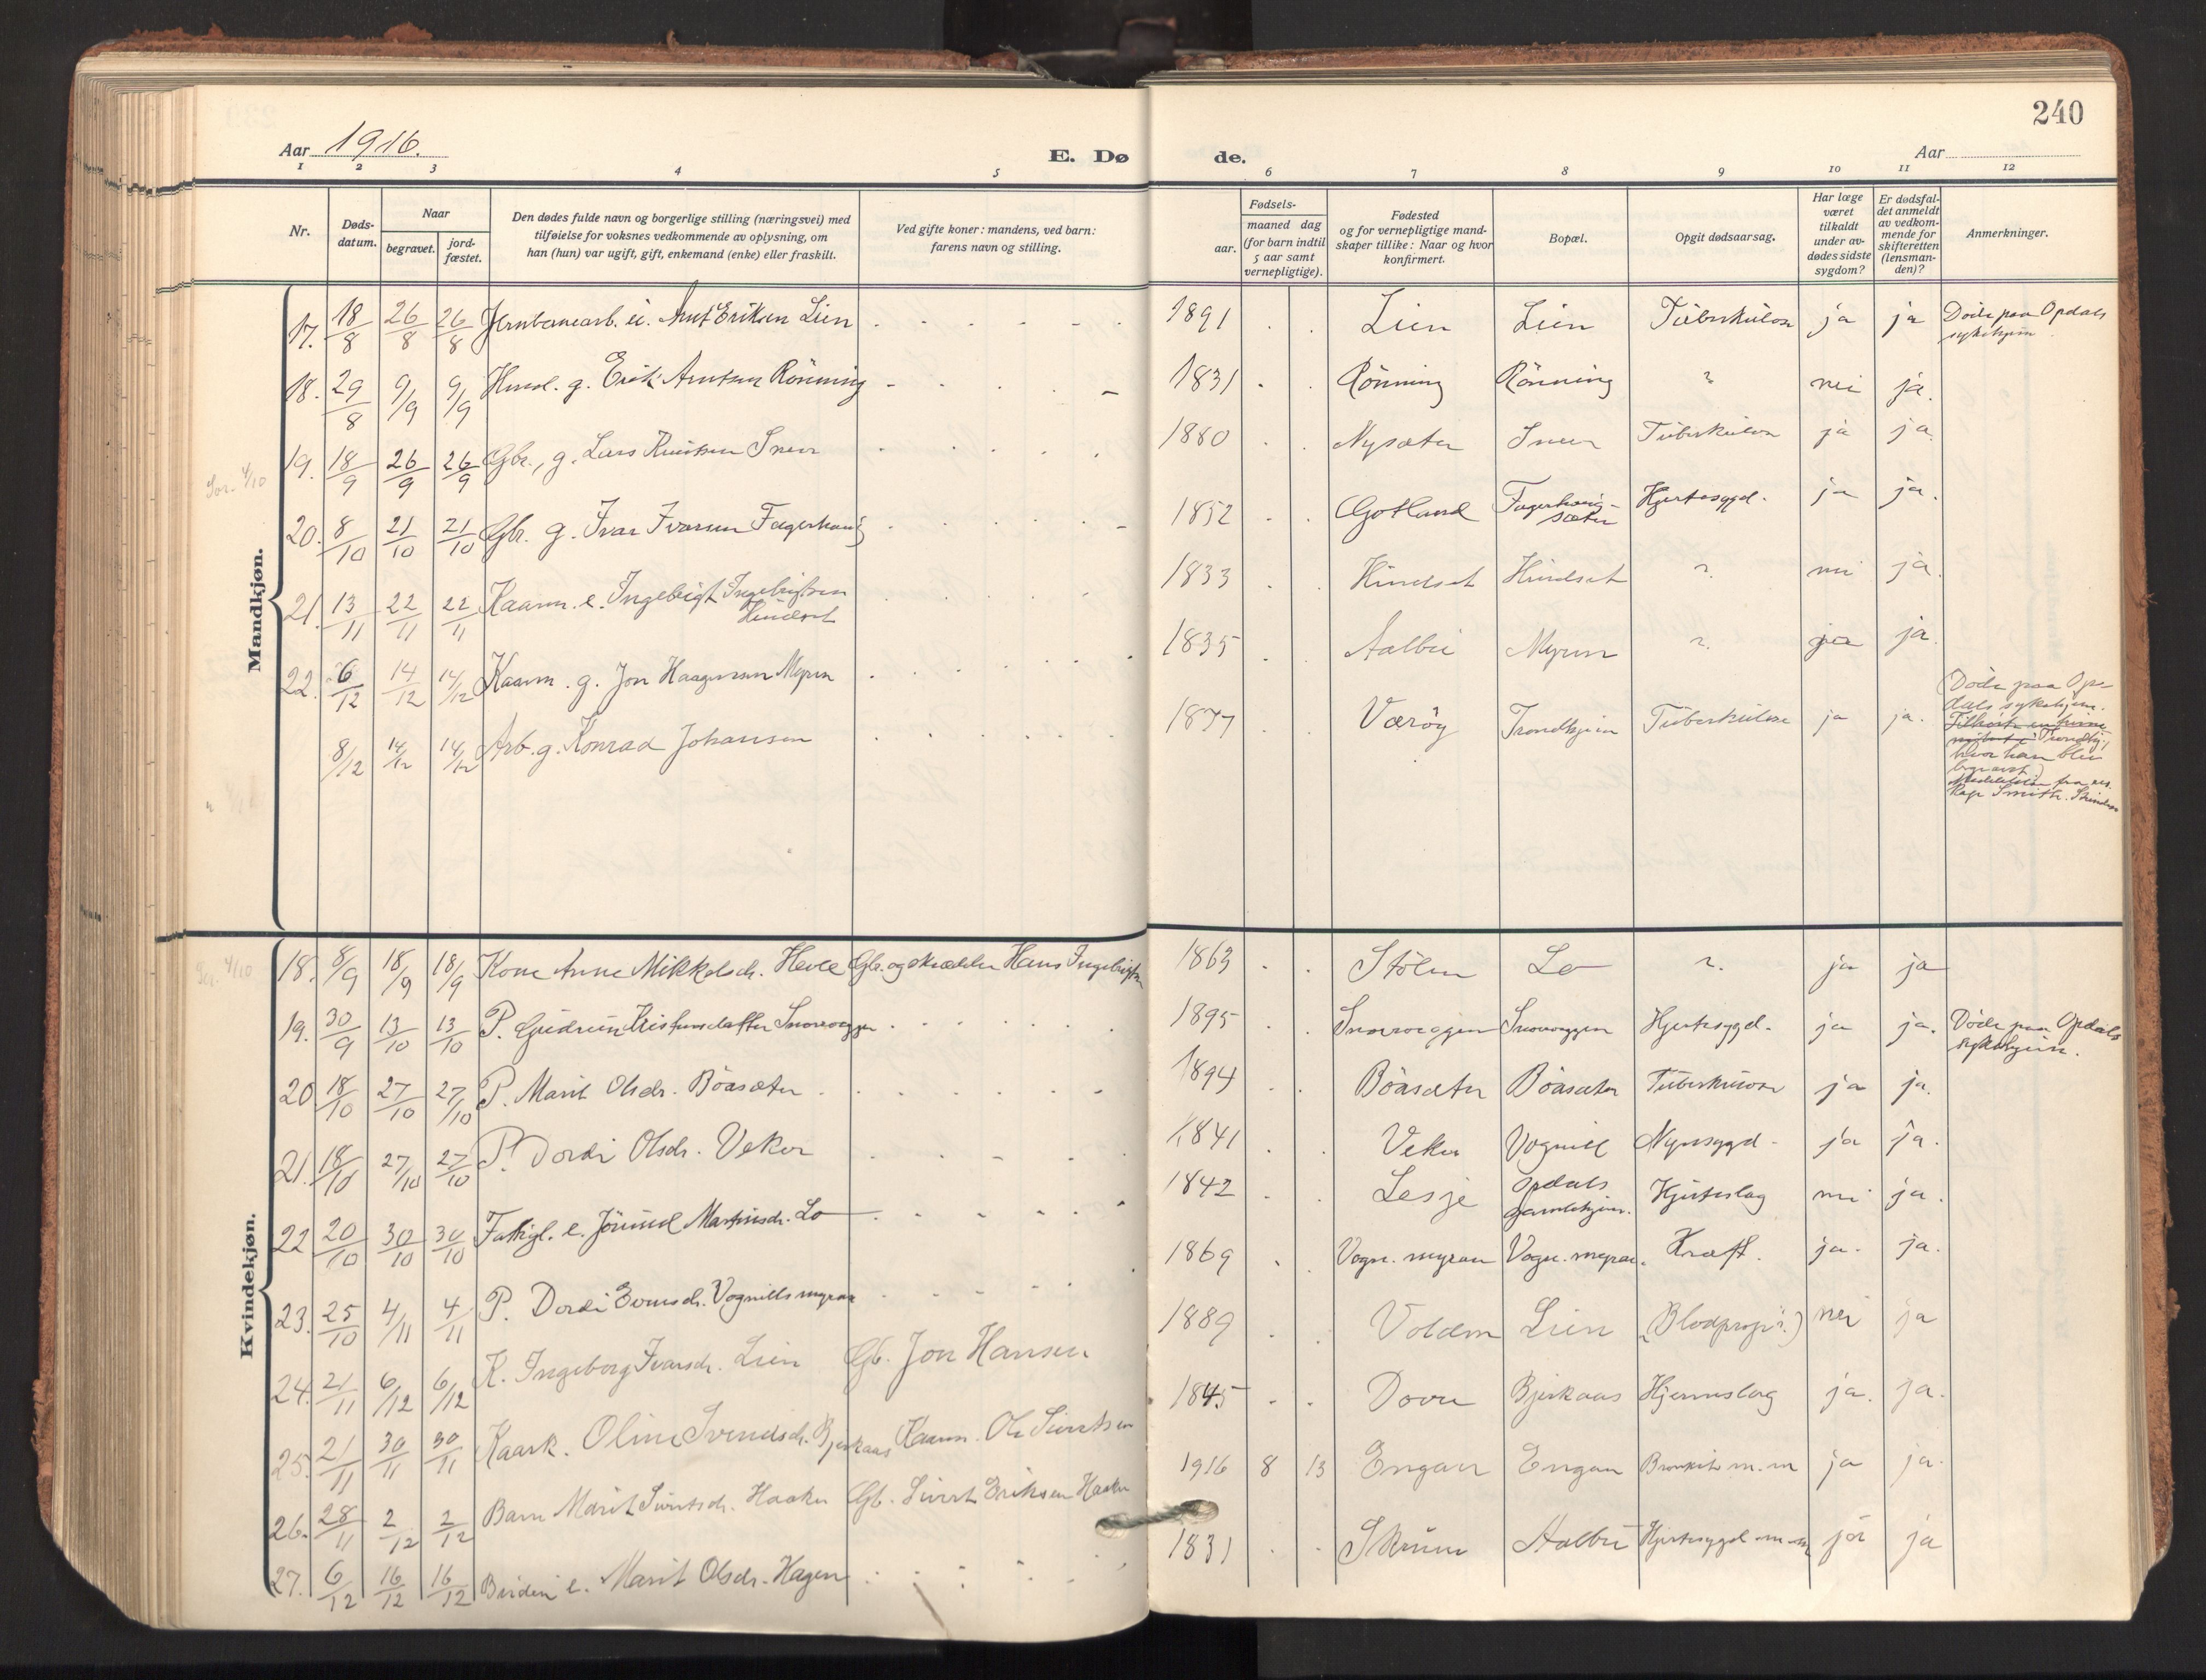 240
Aar 1916.
E. Døde.
Aar
1 2 3 4 5 6 7 8 9 10 11 12
Nr.
Døds-
datum.
Naar
begravet.
jord-
fæstet.
Den dødes fulde navn og borgerlige stilling (næringsvei) med
tilføielse for voksnes vedkommende av oplysning, om
han (hun) var ugift, gift, enkemand (enke) eller fraskilt.
Ved gifte koner: mandens, ved barn:
farens navn og stilling.
Fødsels-
aar.
maaned dag
(for barn indtil
5 aar samt
vernepligtige).
Fødested
og for vernepligtige mand-
skaper tillike: Naar og hvor
konfirmert.
Bopæl.
Opgit dødsaarsag.
Har læge
været
tilkaldt
under av-
dødes sidste
sygdom?
Er dødsfal-
det anmeldt
av vedkom-
mende for
skifteretten
(lensman-
den)?
Anmerkninger.
Mandkjøn.
17. 18/8 26/8 26/8 Jernbanearb. u. Arnt Eriksen Lien 1891 Lien Lien Tuberkulose ja ja Døde paa Opdals
sykehjem
18. 29/8 9/9 9/9 Husm. g. Erik Arntsen Rönning 1831 Rönning Rönning ? nei ja.
19. 18/9 26/9 26/9 Gbr., g. Lars Knutsen Snen 1880 Nysæter Snen Tuberkulose ja ja.
20. 8/10 21/10 21/10 Gbr. g. Ivar Ivarsen Fagerhaug 1852 Gotland Fagerhaug-
sæter Hjertesygd. ja ja.
21. 13/11 22/11 22/11 Kaarm. e. Ingebrigt Ingebrigtsen
Hindset 1833 Hindset Hindset ?. nei ja.
22. 6/12 14/12 14/12 Kaarm. g. Jon Haagensen Myren 1835 Aalbu Myren ?. ja ja.
8/12 14/12 14/12 Arb. g. Konrad Johansen 1877 Værøy Trondhjem Tuberkulose ja ja. (Døde paa Op-
dals sykehjem.
Trondhj.,
hvor han blev
begravet)
fra res.
Kap. Smith.
Kvindekjøn.
18. 8/9 18/9 18/9 Kone Anne Mikkelsdr. Hevle Gbr. og skrædder Hans Ingebrigtsen 1863 Stölen Lo ?. ja ja
19. 30/9 13/10 13/10 P. Gudrun Kristensdatter Snoveggen 1895 Snoveggen Snoveggen Hjertesygd. ja ja. Døde paa Opdals
sykehjem.
20 18/10 27/10 27/10 P. Marit Olsdr. Böasæter 1894 Böasæter Böasæter Tuberkulose ja ja.
21. 18/10 27/10 27/10 P. Dordi Olsdr. Veker 1841 Veker Vognill Nyresygd. ja ja.
22 20/10 30/10 30/10 Fattigl. e. Jörund Martinsdr. Lo 1842 Lesje Opdals
gamlehjem. Hjerteslag nei ja.
23. 25/10 4/11 4/11 P. Dordi Evensdr. Vognillsmyran 1869 Vogn. myran Vogn. myran. Kræft. ja. ja.
24. 21/11 6/12 6/12 K. Ingeborg Ivarsdr. Lien Gb. Jon Hansen 1889 Volden Lien (Blodprop?.) nei ja
25. 21/11 30/11 30/11 Kaark. Oline Svendsdr. Bjerkaas Kaarm. Ole Sivertsen 1845 Dovre Bjerkaas Hjerneslag ja. ja.
26. 28/11 2/12 2/12 Barn Marit Sivertsdr. Haaker Gb. Sivert Eriksen Haaker 1916 8 13 Engan Engan Bronkit m. m ja ja.
27. 6/12 16/12 16/12 e. Marit Olsdr. Hagen 1831 Skruen Aalbu Hjertesygd m.m ja ja